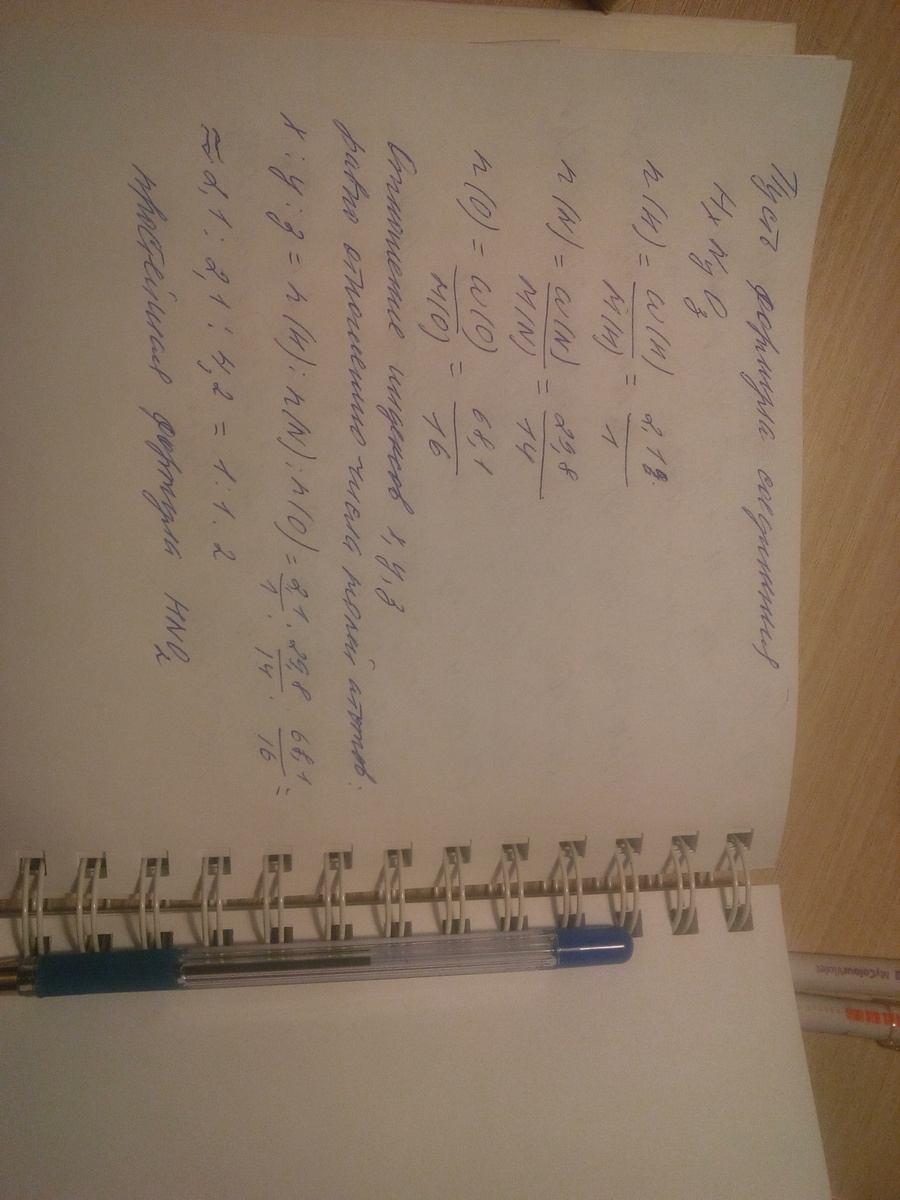 Пусть формула соединения
HxNyOz
n(H) = ω(H)/M(H) = 2,12/1
n(N) = ω(N)/M(N) = 29,8/14
n(O) = ω(O)/M(O) = 68,1/16
Отношение индексов x, y, z
равно отношению числа молей атомов:
x : y : z = n(H) : n(N) : n(O) = 2,1/1 : 29,8/14 : 68,1/16 =
≈ 2,1 : 2,1 : 4,2 = 1 : 1 : 2
простейшая формула HNO2
MyColourViolet